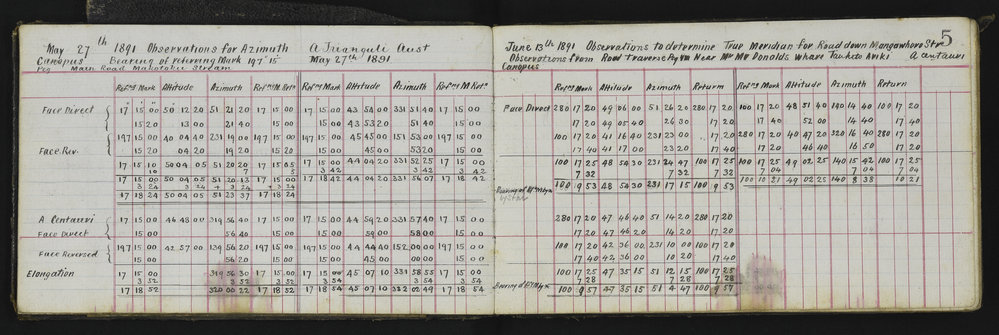 May 27th 1891 Observations for Azimuth A Trianguli Aust
Canopus Bearing of referring Mark 197° 15' May 27th 1891
Peg Main Road Makotuku Stream
Ref.g Mark Altitude Azimuth Ref.g Mark Ref.g Mark Altitude Azimuth Ref.g M
Face Direct 17 15 00 50 12 20 51 21 20 17 15 00 17 15 00 43 54 00 331 51 40 17 15 00
15 20 13 00 21 40 15 00 15 00 43 53 20 51 40 15 00
197 15 00 40 04 40 231 19 00 197 15 00 197 15 00 45 45 00 151 53 00 197 15 00
Face Rev. 15 20 04 20 19 20 15 20 15 00 45 00 53 20 15 00
17 15 10 50 04 05 51 20 20 17 15 05 17 15 00 44 04 20 331 52 25 17 15 00
10 7 5 3 42 3 42 3 42
17 15 00 50 04 05 51 20 13 17 15 00 17 18 42 44 04 20 331 56 07 17 18 42
3 24 3 24 + 3 24 + 3 24
17 18 24 50 04 05 51 23 37 17 18 24
A Centauri 17 15 00 46 48 00 319 56 40 17 15 00 17 15 00 44 59 20 331 57 40 17 15 00
Face Direct 15 00 56 40 15 00 15 00 59 00 58 00 15 00
197 15 00 42 57 00 139 56 20 197 15 00 197 15 00 44 44 40 152 00 00 197 15 00
Face Reversed 15 00 56 20 15 00 15 00 45 00 00 00 15 00
Elongation 17 15 00 319 56 30 17 15 00 17 15 00 45 07 10 331 58 55 17 15 00
3 52 3 52 3 52 3 54 3 54 3 54
17 18 52 320 00 22 17 18 52 17 18 54 45 07 10 332 02 49 17 18 54
5
June 13th 1891 Observations to determine True Meridian for Road down Mangawhero Str.
Observations from Road Traverse Peg Near Mr McDonalds Whare A Centauri
Canopus
Ref.g Mark Altitude Azimuth Return Ref.g Mark Altitude Azimuth Return
Face Direct 280 17 20 49 06 00 51 26 20 280 17 20 100 17 20 48 51 40 140 14 40 100 17 20
17 20 49 05 40 26 30 17 20 17 40 52 00 14 40 17 40
100 17 20 41 16 40 231 23 00 17 20 280 17 20 40 47 20 320 16 40 280 17 20
17 40 41 17 00 23 20 17 40 17 20 46 40 16 50 17 20
100 17 25 48 54 30 231 24 47 100 17 25 100 17 25 49 02 25 140 15 42 100 17 25
7 32 7 32 7 32 7 04 7 04 7 04
100 9 53 48 54 30 231 17 15 100 9 53 100 10 21 49 02 25 140 8 38 10 21
280 17 20 47 46 40 51 14 20 280 17 20
17 20 47 46 20 14 20 17 20
100 17 20 42 36 00 231 10 00 100 17 20
17 40 42 36 00 10 20 17 40
100 17 25 47 35 15 51 12 15 100 17 25
7 28 7 28 7 28
100 9 57 47 35 15 51 4 47 100 9 57